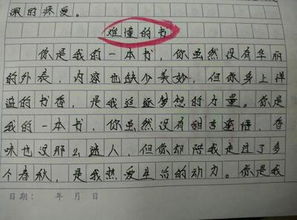 深的疼爱。
难懂的书
你是我的一本书，你虽然没有华丽
的外表，内容也缺个美妙，但你身上洋
溢的书香，是我延逐梦想的力量。你是
我的一本书，你虽然没有甜言蜜语，香
味也没那么迷人，但你却陪我走过了多
个春秋，是我热爱生活的动力。你是我
日期： 年 月 日